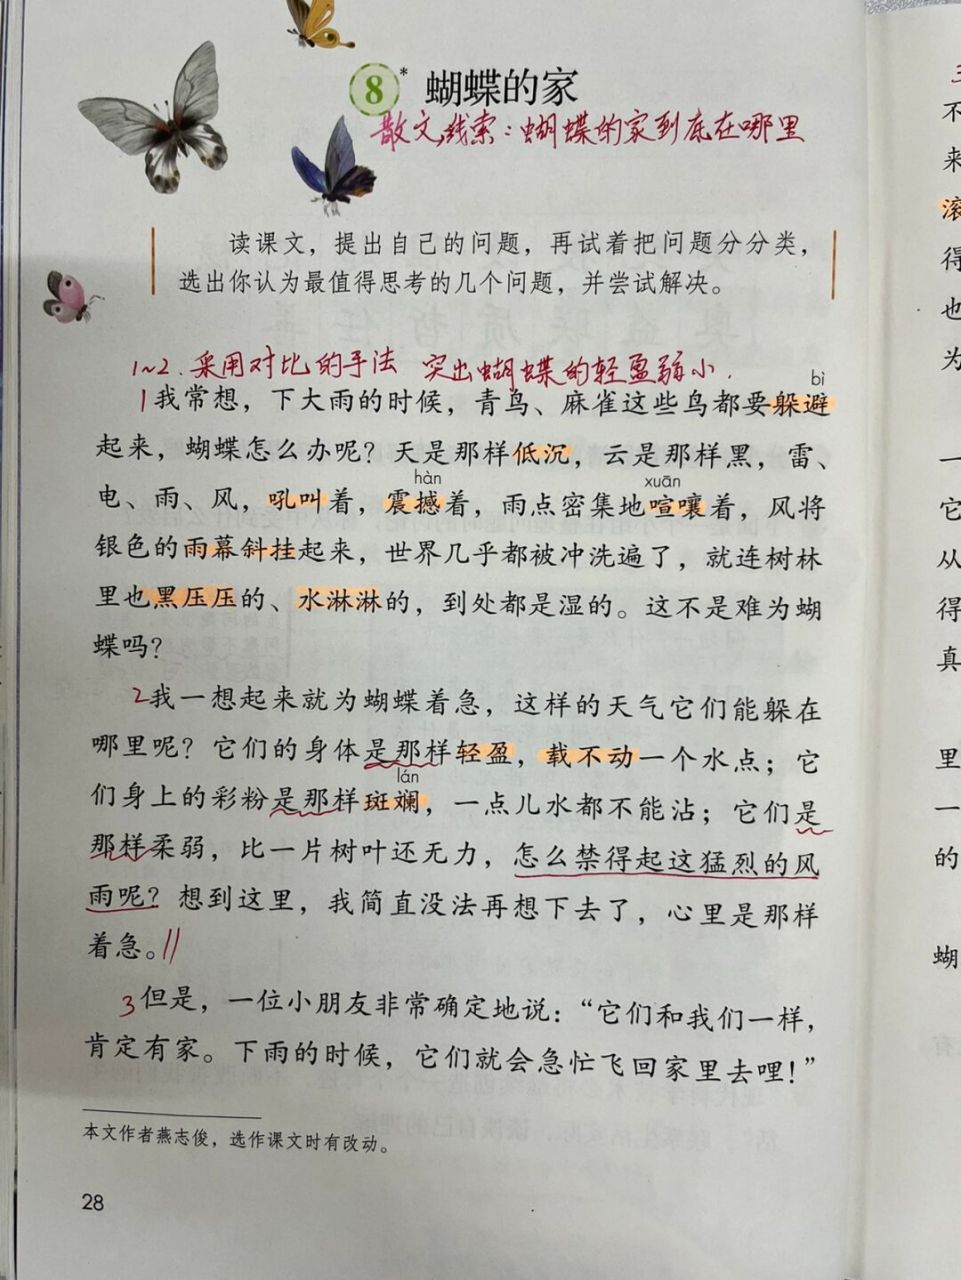 8* 蝴蝶的家
散文线索:蝴蝶的家到底在哪里
读课文，提出自己的问题，再试着把问题分分类，
选出你认为最值得思考的几个问题，并尝试解决。
1~2.采用对比的手法 突出蝴蝶的轻盈弱小.
bì
1我常想，下大雨的时候，青鸟、麻雀这些鸟都要躲避
起来，蝴蝶怎么办呢？天是那样低沉，云是那样黑，雷、
hàn xuān
电、雨、风，吼叫着，震撼着，雨点密集地喧嚷着，风将
银色的雨幕斜挂起来，世界几乎都被冲洗遍了，就连树林
里也黑压压的、水淋淋的，到处都是湿的。这不是难为蝴
蝶吗？
2我一想起来就为蝴蝶着急，这样的天气它们能躲在
哪里呢？它们的身体是那样轻盈，载不动一个水点；它
lán
们身上的彩粉是那样斑斓，一点儿水都不能沾；它们是
那样柔弱，比一片树叶还无力，怎么禁得起这猛烈的风
雨呢？想到这里，我简直没法再想下去了，心里是那样
着急。//
3但是，一位小朋友非常确定地说：“它们和我们一样，
肯定有家。下雨的时候，它们就会急忙飞回家里去哩！”
本文作者燕志俊，选作课文时有改动。
28
不
来
滚
得
也
为
一
它
从
得
真
里
一
的
蝴